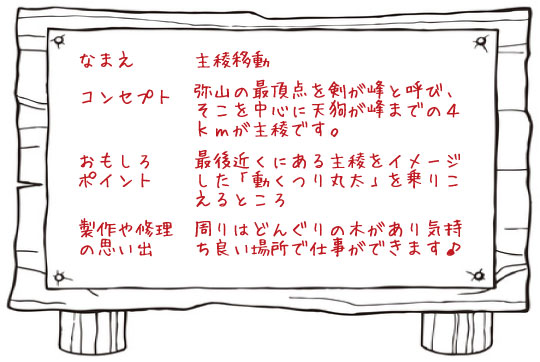 なまえ 主稜移動
コンセプト 弥山の最頂点を剣が峰と呼び、
そこを中心に天狗が峰までの4
kmが主稜です。
おもしろ 最後近くにある主稜をイメージ
ポイント した「動くつり丸太」を乗りこ
えるところ
製作や修理 周りはどんぐりの木があり気持
の思い出 ち良い場所で仕事ができます♪